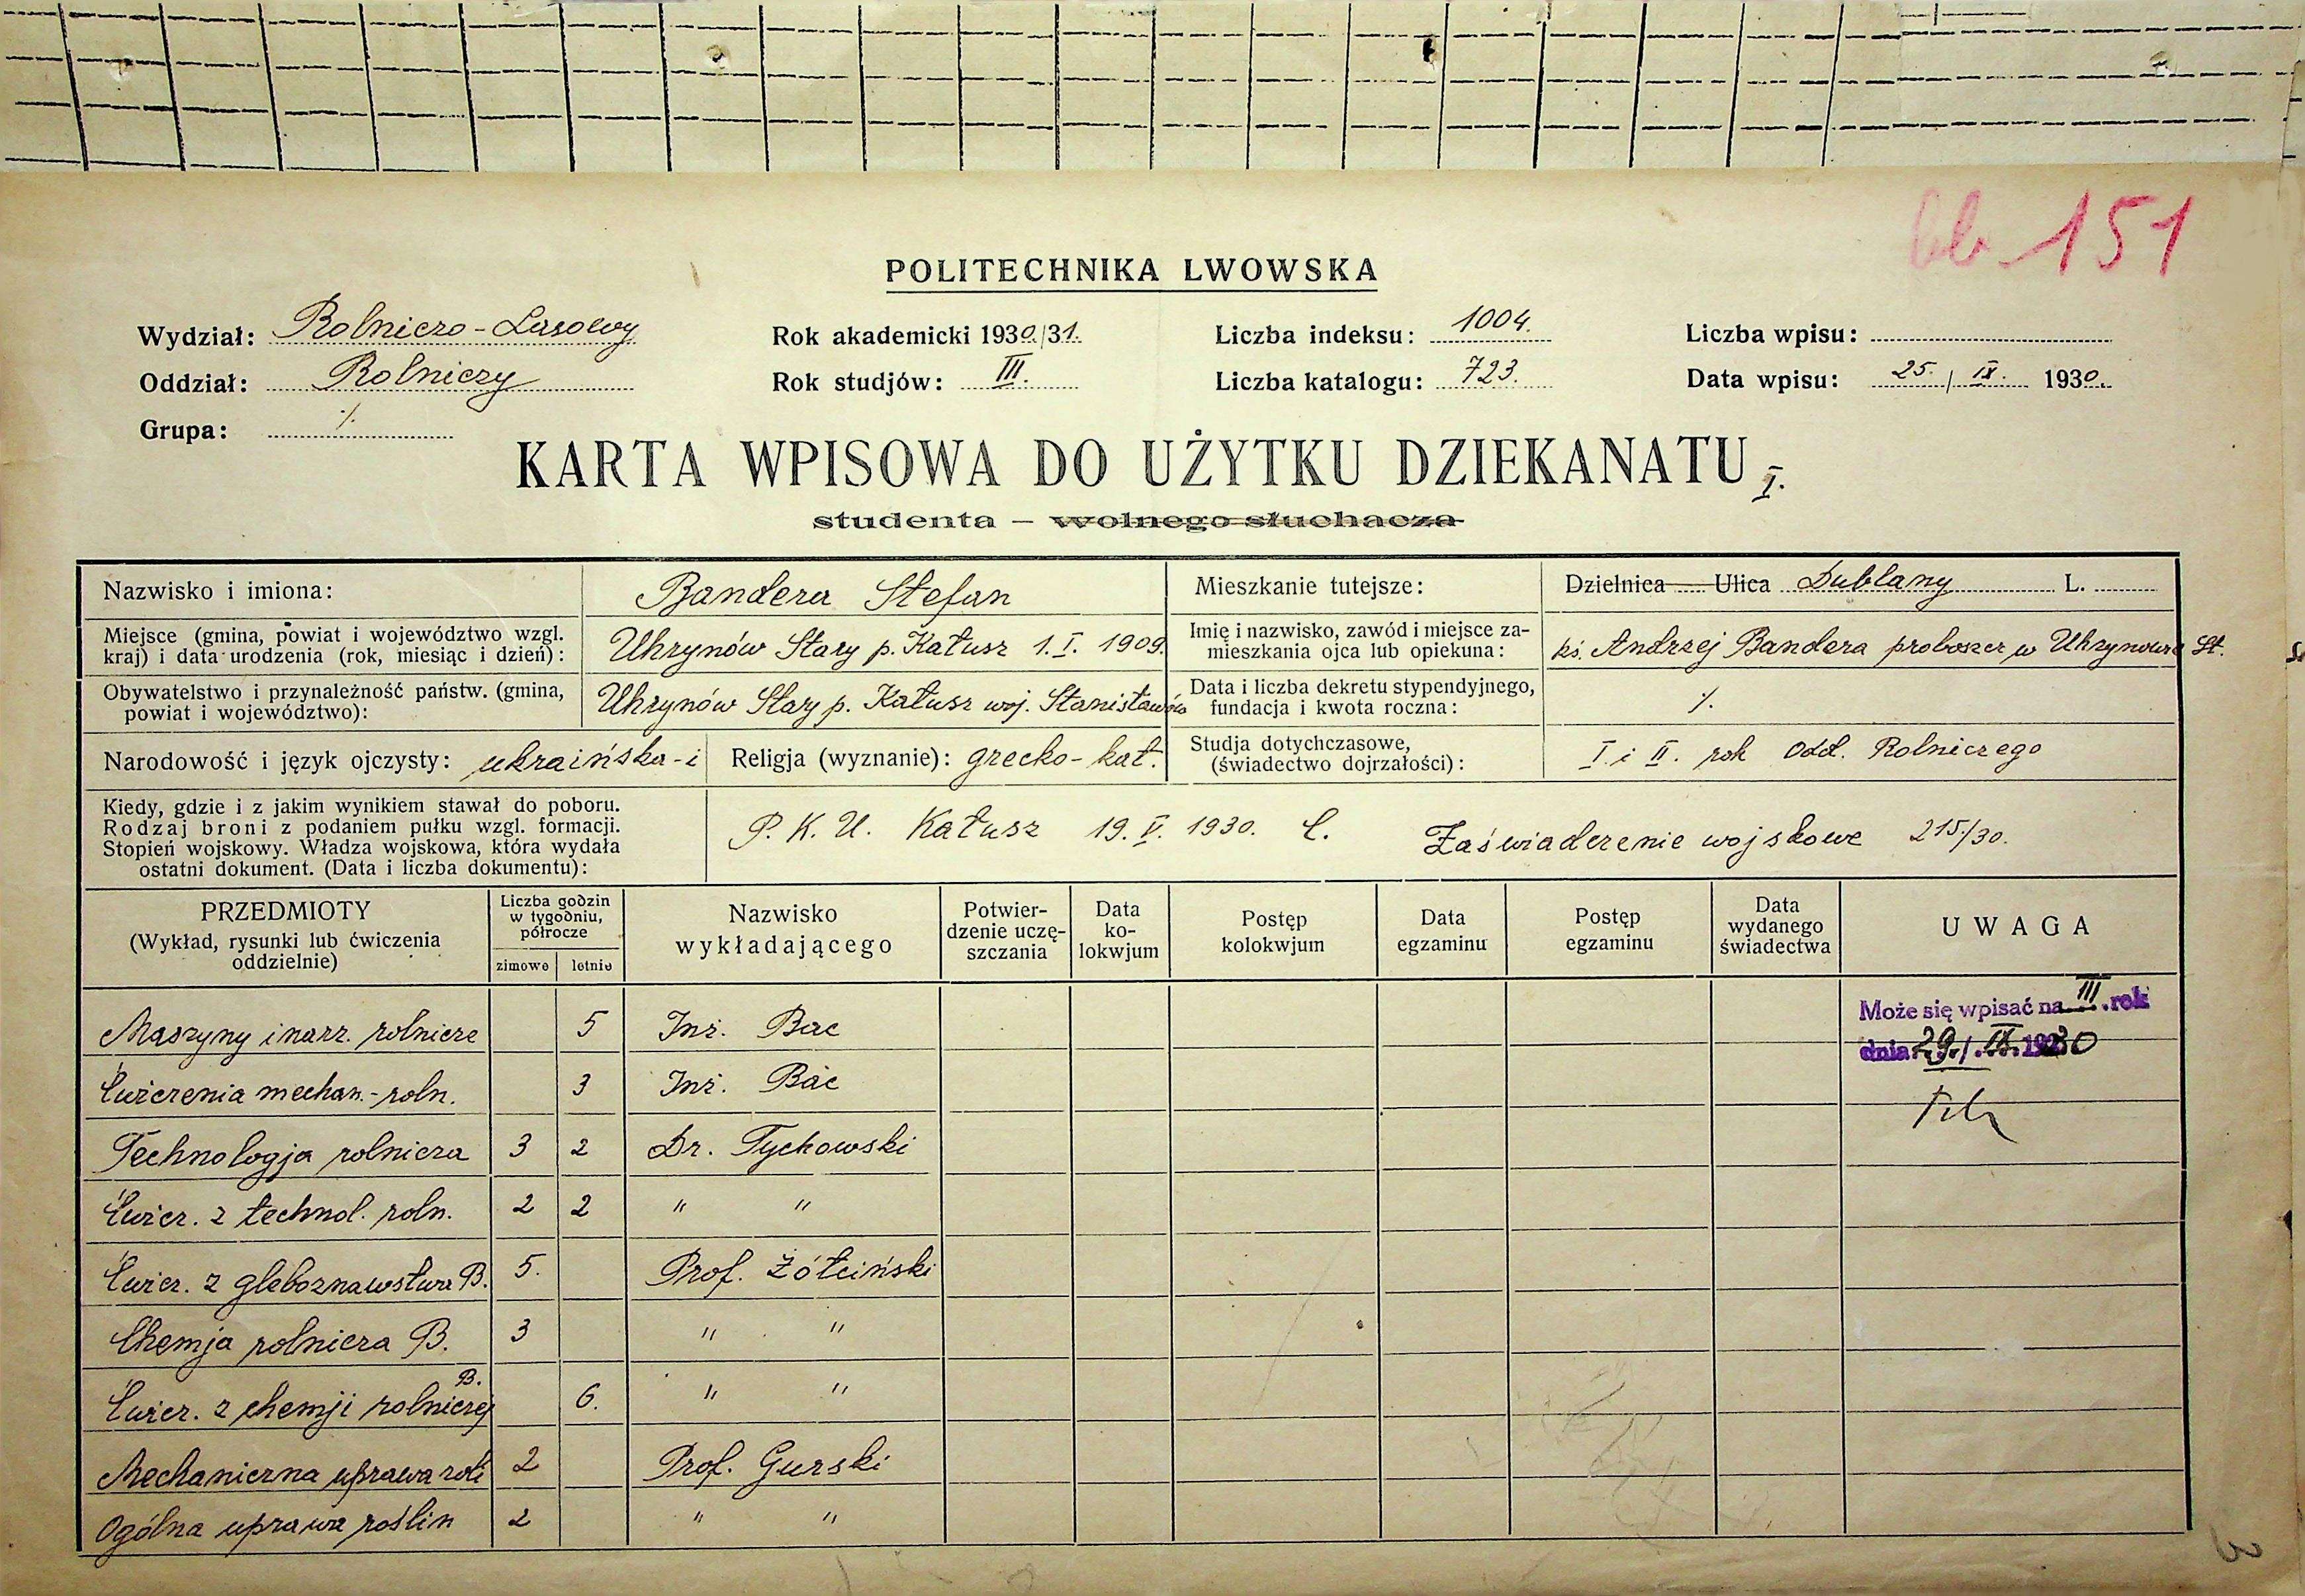 151
POLITECHNIKA LWOWSKA
Wydział: Rolniczo-Lasowy
Rok akademicki 1930/31.
Liczba indeksu: 1004.
Liczba wpisu:
Oddział: Rolniczy
Rok studjów: III.
Liczba katalogu: 723.
Data wpisu: 25. IX. 1930.
Grupa: ·/.
KARTA WPISOWA DO UŻYTKU DZIEKANATU I.
studenta – wolnego słuchacza
Nazwisko i imiona: Bandera Stefan
Mieszkanie tutejsze: Dzielnica Ulica Dublany L.
Miejsce (gmina, powiat i województwo wzgl.
kraj) i data urodzenia (rok, miesiąc i dzień):
Uhrynów Stary p. Kałusz 1. I. 1909.
Imię i nazwisko, zawód i miejsce za-
mieszkania ojca lub opiekuna:
ks. Andrzej Bandera proboszcz w Uhrynowie St.
Obywatelstwo i przynależność państw. (gmina,
powiat i województwo):
Uhrynów Stary p. Kałusz woj. Stanisławów
Data i liczba dekretu stypendyjnego,
fundacja i kwota roczna:
·/.
Narodowość i język ojczysty: ukraińska-i
Religja (wyznanie): grecko-kat.
Studja dotychczasowe,
(świadectwo dojrzałości):
I. i II. rok Odd. Rolniczego
Kiedy, gdzie i z jakim wynikiem stawał do poboru.
Rodzaj broni z podaniem pułku wzgl. formacji.
Stopień wojskowy. Władza wojskowa, która wydała
ostatni dokument. (Data i liczba dokumentu):
P. K. U. Kałusz 19. V. 1930. C. Zaświadczenie wojskowe 215/30.
PRZEDMIOTY
(Wykład, rysunki lub ćwiczenia
oddzielnie)
Liczba godzin
w tygodniu,
półrocze
zimowe letnie
Nazwisko
wykładającego
Potwier-
dzenie uczę-
szczania
Data
ko-
lokwjum
Postęp
kolokwjum
Data
egzaminu
Postęp
egzaminu
Data
wydanego
świadectwa
UWAGA
Maszyny i narz. rolnicze 5 Inż. Bac
Może się wpisać na III. rok
dnia 29. IX. 1930
Ćwiczenia mechan.-roln. 3 Inż. Bac
Technologja rolnicza 3 2 Dr. Tychowski
Ćwicz. z technol. roln. 2 2 " "
Ćwicz. z gleboznawstwa B. 5. Prof. Żółciński
Chemja rolnicza B. 3 " "
Ćwicz. z chemji rolniczej B. 6. " "
Mechaniczna uprawa roli 2 Prof. Gurski
Ogólna uprawa roślin 2 " "